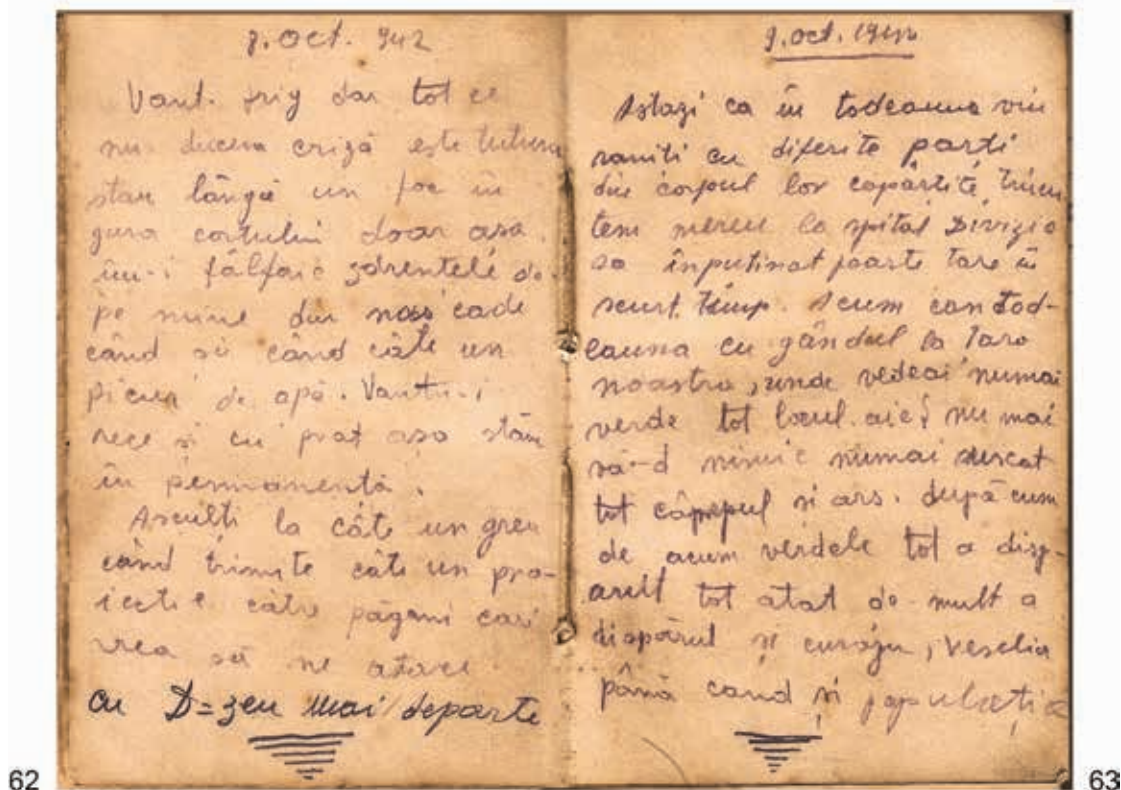 8. Oct. 942
Vant. frig dar tot ce
nu ducem criză este tutun
stau lângă un foc în
gura cortului doar așa.
îm-i fâlfaie zdrentele de
pe mine din nas cade
când și când câte un
picur de apă. Vantu-i
rece și cu praf așa stăm
în permanentă.
Asculți la câte un greu
când trimite câte un pro-
iectil către păgani cari
vrea să ne atace
cu D=zeu mai departe
62
9. oct. 1942
Astazi ca în todeauna vin
raniti cu diferite parti
din corpul lor
tem mereu la spital Divizia
sa înputinat foarte tare în
scurt timp. Acum ca în tod-
eauna cu gândul la Tara
noastra, unde vedeai numai
verde tot locul. aici nu mai
vă-d nimic numai uscat
tot câmpul și ars. după cum
de acum verdele tot a disp-
arut tot atat de mult a
dispărut și curaju, veselia
până cand și populația
63